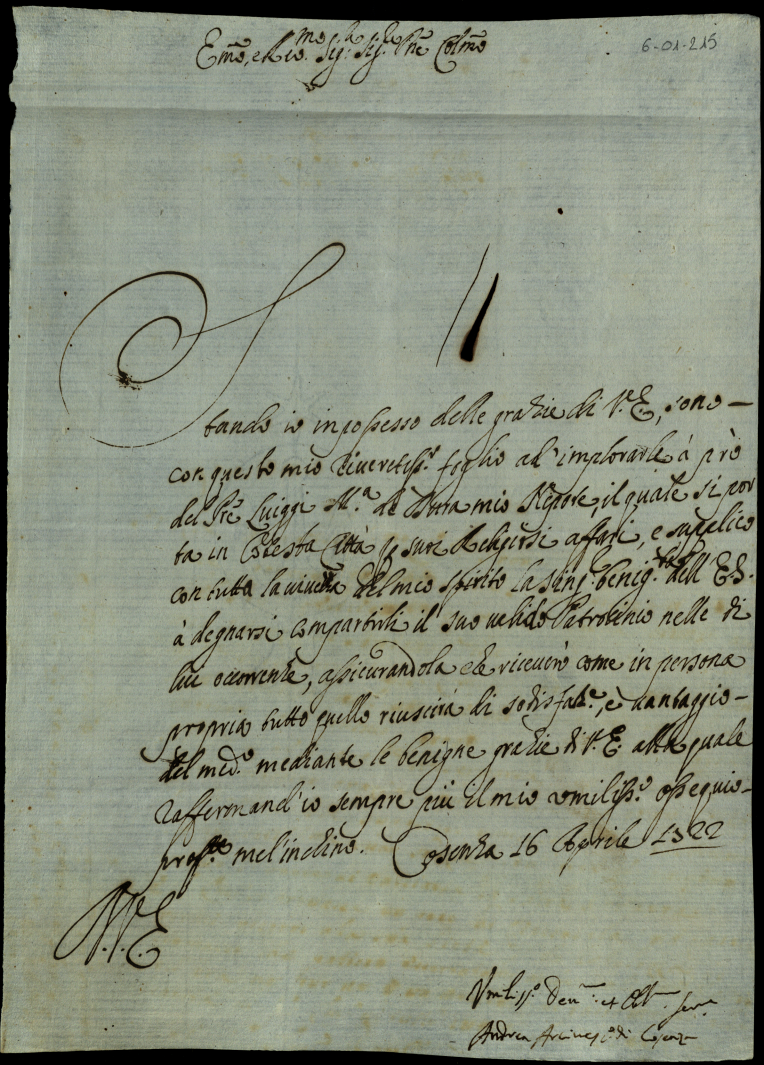 Emo, e Rmo. Sig:r Sig:r Pne Colmo
6-01-215
Stando io in possesso delle grazie di V.E., sono-
con questo mio riveretiss.o foglio ad'implorarle à prò
del Pre Luiggi M.a di mio Nipote, il quale si por
ta in Cotesta Città p suoi Religiosi affari, e supplico
con tutta la vivezza del mio spirito la sing.e benig.tà dell'E.S.
à degnarsi compartirli il suo valido Patrocinio nelle di
lui occorrenze, assicurandola che riceverò come in persona
propria tutto quello riuscirà di sodisfaz.e, è vantaggio-
del med.o mediante le benigne grazie di V.E. alla quale
raffermand'io sempre più il mio umiliss.o ossequio-
prof.te mel'inchino. Cosenza 16 Aprile 1722
D.V.E
Umiliss.o Deu.: et Obl. Ser.
Andrea Arciues.o di Cosenza